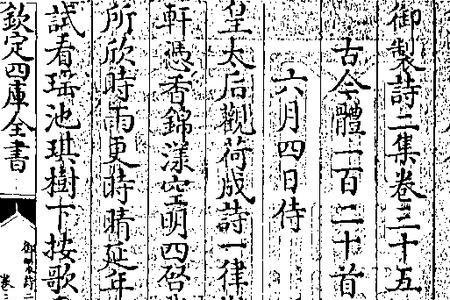 御製詩二集卷三十五
古今體一百二十首
六月四日侍
皇太后觀荷成詩一律
軒憑香錦漾空明四
所欣時雨更時晴延年
試看瑶池琪樹下按歌
欽定四庫全書
御製詩二
卷三